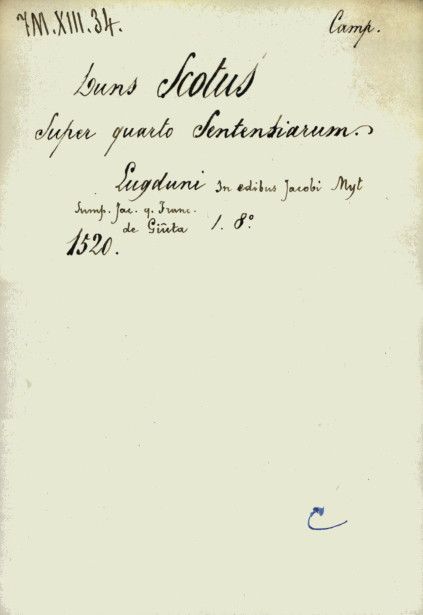 7M.XIII.34. Camp.
Duns Scotus
Super quarto Sententiarum.
Lugduni In edibus Jacobi Myt
Sump. Jac. q. Franc.
de Giūta 1. 8º
1520.
C